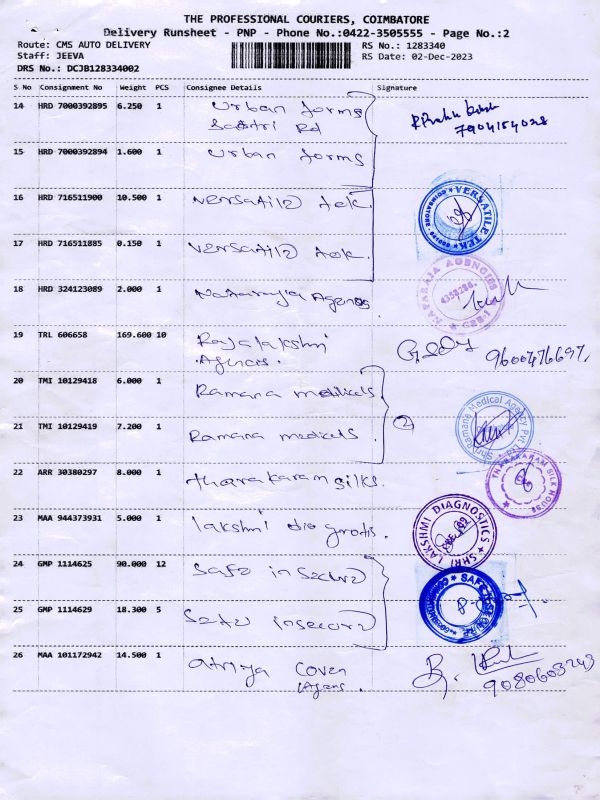 THE PROFESSIONAL COURIERS, COIMBATORE
Delivery Runsheet - PNP - Phone No.:0422-3505555 - Page No.:2
Route: CMS AUTO DELIVERY RS No.: 1283340
Staff: JEEVA RS Date: 02-Dec-2023
DRS No.: DCJB128334002
S No Consignment No Weight PCS Consignee Details Signature
14 HRD 7000392895 6.250 1 Urban forms
Sastri Rd
7904154028
15 HRD 7000392894 1.600 1 Urban forms
16 HRD 716511900 10.500 1 Versatile tek.
VERSATILE TEK
17 HRD 716511885 0.150 1 Versatile tek.
18 HRD 324123089 2.000 1 Nataraja Agencies
AGENCIES
19 TRL 606658 169.600 10 Rajalakshmi
Agences.
9600476697
20 TMI 10129418 6.000 1 Ramana medicals
21 TMI 10129419 7.200 1 Ramana medicals
2
Shri Ramana Medical Agency Pvt Ltd
22 ARR 30380297 8.000 1 tharakaram silks
THARAKARAM SILK HOUSE
23 MAA 944373931 5.000 1 lakshmi
SHRI LAKSHMI DIAGNOSTICS
24 GMP 1114625 90.000 12 Safe
25 GMP 1114629 18.300 5
26 MAA 101172942 14.500 1 Cover
Agens.
9080603243